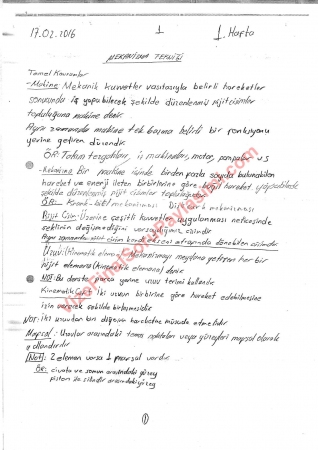 17.02.2016
1
1. Hafta
MEKANİZMA TEKNİĞİ
Temel Kavramlar
-Makine: Mekanik kuvvetler vasıtasıyla belirli hareketler
sonucunda iş yapabilecek şekilde düzenlenmiş rijit cisimler
topluluğuna makine denir.
Aynı zamanda makine tek başına belirli bir fonksiyonu
yerine getiren düzendir.
ÖR: Takım tezgahları, iş makinaları, motor, pompalar v.s
-Mekanizma: Bir makine içinde birden fazla sayıda bulunabilen
hareket ve enerji ileten birbirlerine göre hareket yapabilecek
şekilde düzenlenmiş rijit cisimler topluluğudur.
ÖR: Krank-biyel mekanizması mekanizması
Rijit Cisim: Üzerine çeşitli kuvvetler uygulanması neticesinde
şeklinin değişmediğini varsaydığımız cisimdir.
Aynı zamanda rijit cisim kendi ekseni etrafında dönebilen cisimdir
Uzuv: (Kinematik eleman) Mekanizmayı meydana getiren her bir
rijit elemana (kinematik elemana) denir
NOT: Bu derste parça yerine uzuv terimi kullanılır
Kinematik Çift: İki uzvun birbirine göre hareket edebilmesi
için verilecek şekilde birleşmesidir
NOT: İki uzuvdan biri diğerinin hareketine müsaade etmelidir
Mafsal: Uzuvlar arasındaki temas noktaları veya yüzeyleri mafsal olarak
adlandırılır
Not: 2 eleman varsa 1 mafsal vardır.
ÖR: civata ve somun arasındaki yüzey
piston ile silindir arasındaki yüzey
1